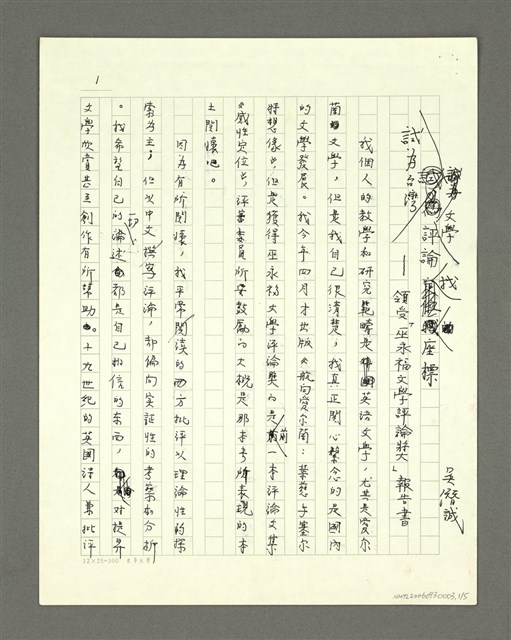 試為台灣文學評論找座標
——領受「巫永福文學評論獎」報告書
吳潛誠
我個人的教學和研究範疇是英語文學,尤其是愛尔
蘭文學,但是我自己很清楚,我真正關心繫念的是國內
的文學發展。我今年四月才出版《航向愛尔蘭:葉慈与塞尔
特想像》,但是獲得巫永福文學評論獎的是前一本評論文集
《感性定位》,評審委員所要鼓勵的大概是那本書所表現的本
土關懷吧。
因為有所關懷,我平常閱讀的西方批評以理論性的探
索為主;但以中文撰寫評論,却偏向实証性的考察和分析
。我希望自己的一切論述都是自己相信的东西,对提昇
文學欣賞甚至創作有所幫助。十九世紀的英国詩人兼批評
1
12×25=300
NMTL20060930003, 1/5